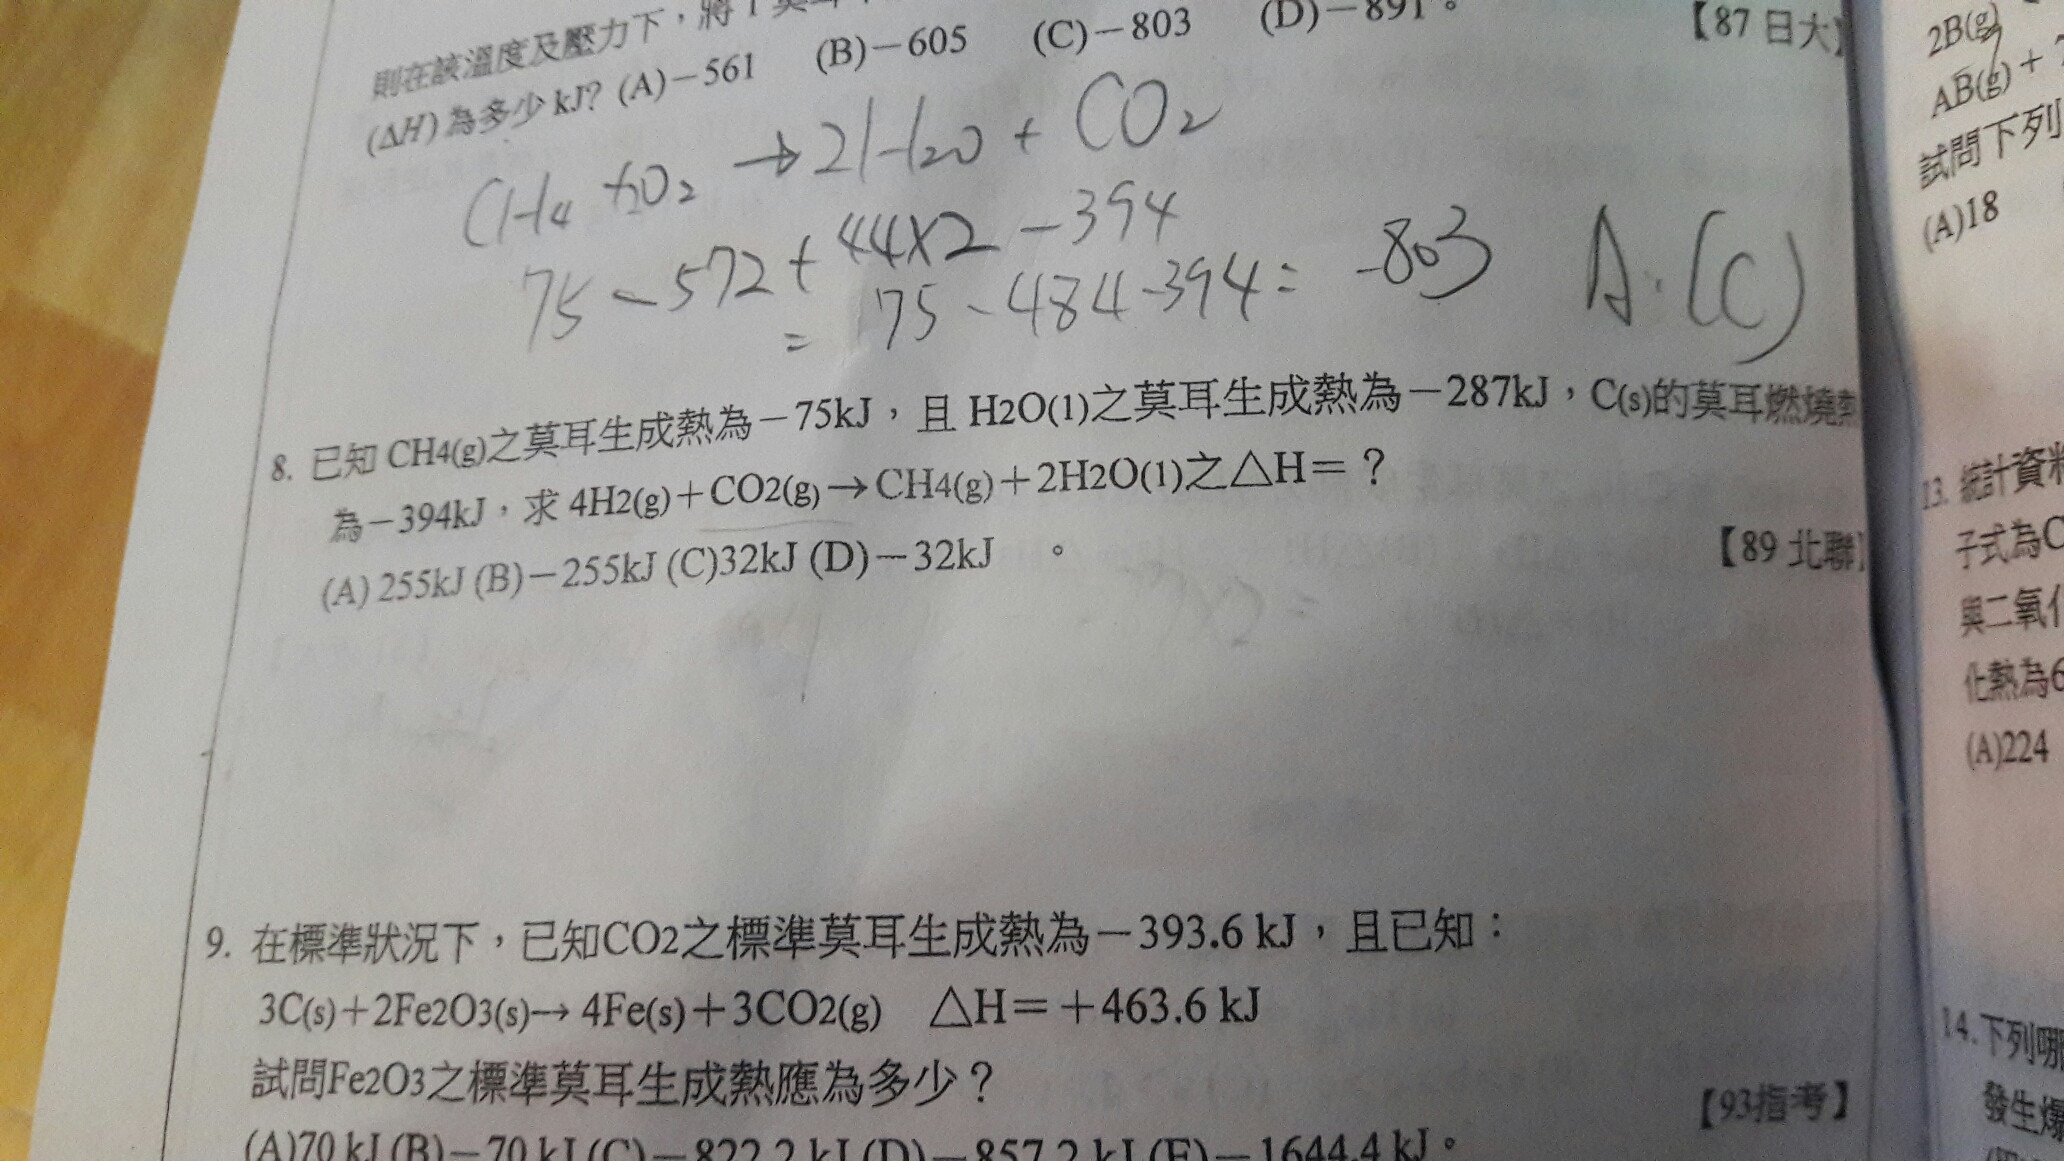 則在該溫度及壓力下，將1莫耳
(ΔH)為多少kJ? (A)－561 (B)－605 (C)－803 (D)－891。
【87 日大】
CH4 +2O2 → 2H2O + CO2
75 - 572 + 44×2 - 394
= 75 - 484 - 394 = -803 A:(C)
8. 已知 CH4(g)之莫耳生成熱為－75kJ，且 H2O(1)之莫耳生成熱為－287kJ，C(s)的莫耳燃燒熱
為－394kJ，求 4H2(g)＋CO2(g)→CH4(g)＋2H2O(1)之△H＝？
(A) 255kJ (B)－255kJ (C)32kJ (D)－32kJ 。
【89 北聯】
9. 在標準狀況下，已知CO2之標準莫耳生成熱為－393.6 kJ，且已知：
3C(s)＋2Fe2O3(s)→ 4Fe(s)＋3CO2(g) △H＝＋463.6 kJ
試問Fe2O3之標準莫耳生成熱應為多少？
【93指考】
(A)70 kJ (B)－70 kJ (C)－822.2 kJ (D)－857.2 kJ (E)－1644.4 kJ。
2B(g)
AB(g)＋
試問下列
(A)18
13. 統計資料
子式為C
與二氧化
化熱為6
(A)224
14.下列哪
發生爆